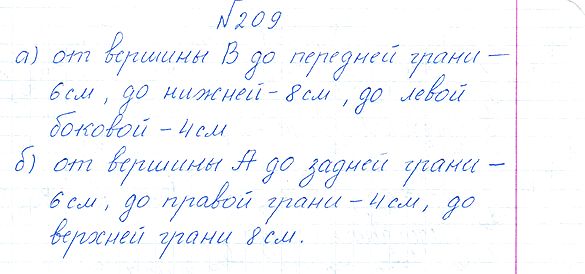 √209
а) от вершины В до передней грани –
6 см, до нижней – 8 см, до левой
боковой – 4 см
б) от вершины А до задней грани –
6 см, до правой грани – 4 см, до
верхней грани 8 см.